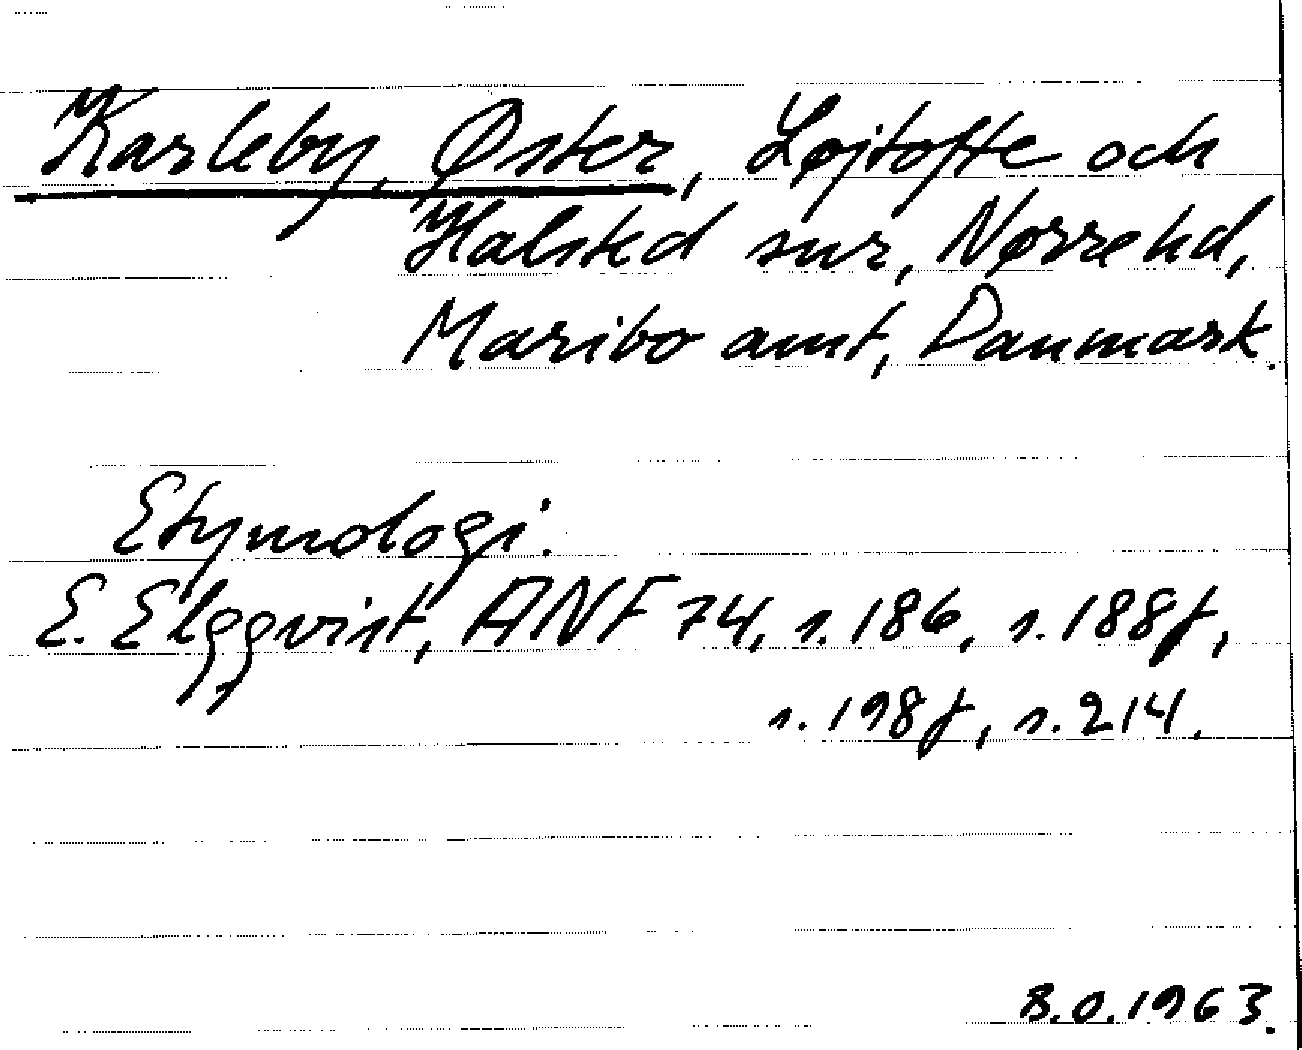 Karleby, Øster, Løjtofte och
Halsted snr, Nørre hd,
Maribo amt, Danmark.
Etymologi.
E. Elgqvist, ANF 74, s. 186, s. 188f,
s. 198f, s. 214.
B.O. 1963.